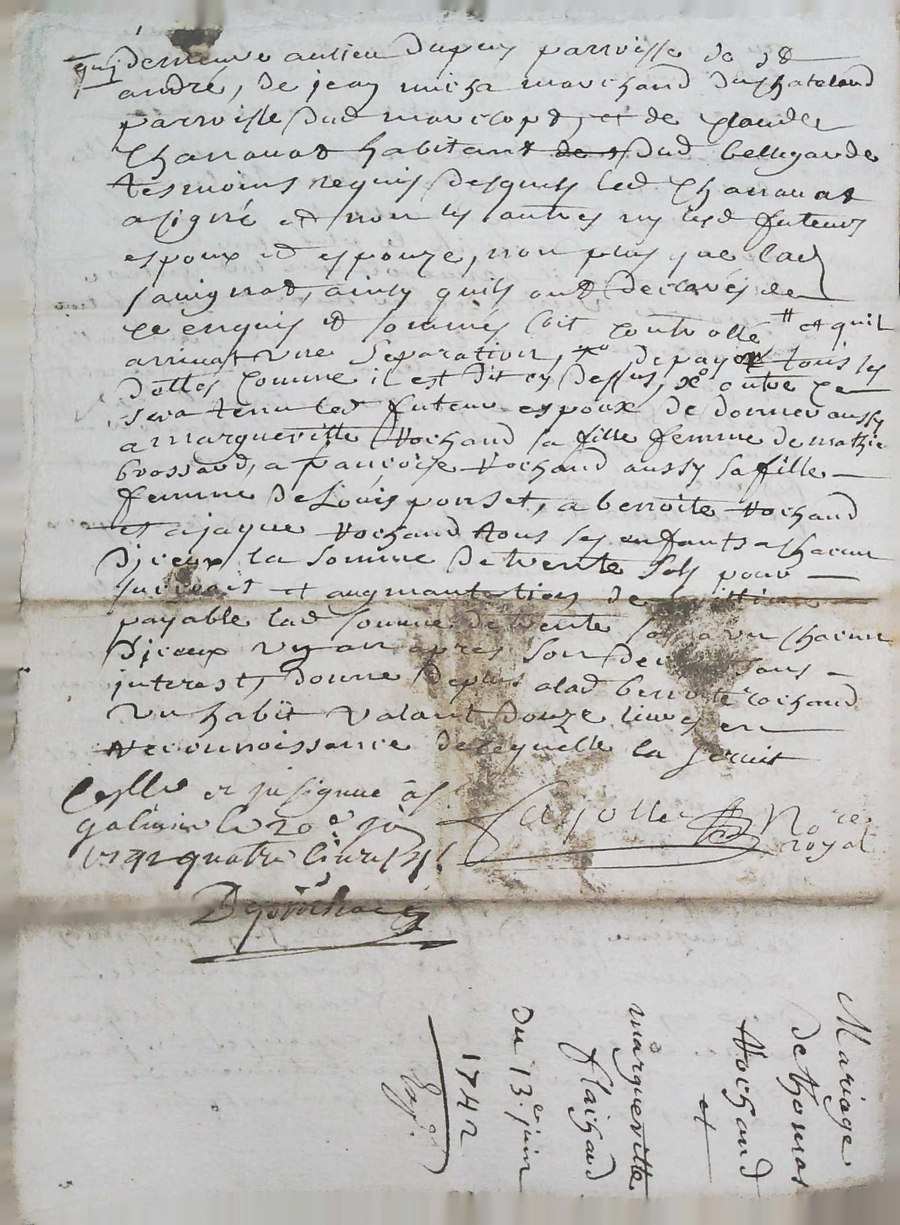 qui demeure au lieu dupuy parroisse de st
andré, de jean micha marchand du chateland
parroisse dud marclopt, et de Claude
Charauat habitant dud bellegarde
tesmoins requis desquels led Charauat
a signé et non les autres ny lesd futeurs
espoux et espouze, non plus que lad
sauignat, ainsy quils ont declarés de
ce enquis et sommés soit controllé # et quil
arriuat une separation, de payer tous les
dettes comme il est dit cy dessus, outre ce
sera tenu led futeur espoux de donner aussy
a margueritte Rochand sa fille femme de mathie
brossard, a francoise Rochand aussy sa fille
femme de Louis ponset, a benoite Rochand
et a jaque Rochand tous ses enfants a chacun
diceux la somme de trente sols pour
et augmantation de
payable lad somme de trente sols a un chacun
diceux un an apres son deces sans
interest, donne depuis a lad benoite rochand
un habit valant douze liures en
reconnoissance de lequelle la seruit
Con͏llé et insignué a St
galmier le 20e jin
1742 quatre liures
Nore
royal
Mariage
de thomas
Rochand
et
margueritte
flachand
du 13e juin
1742